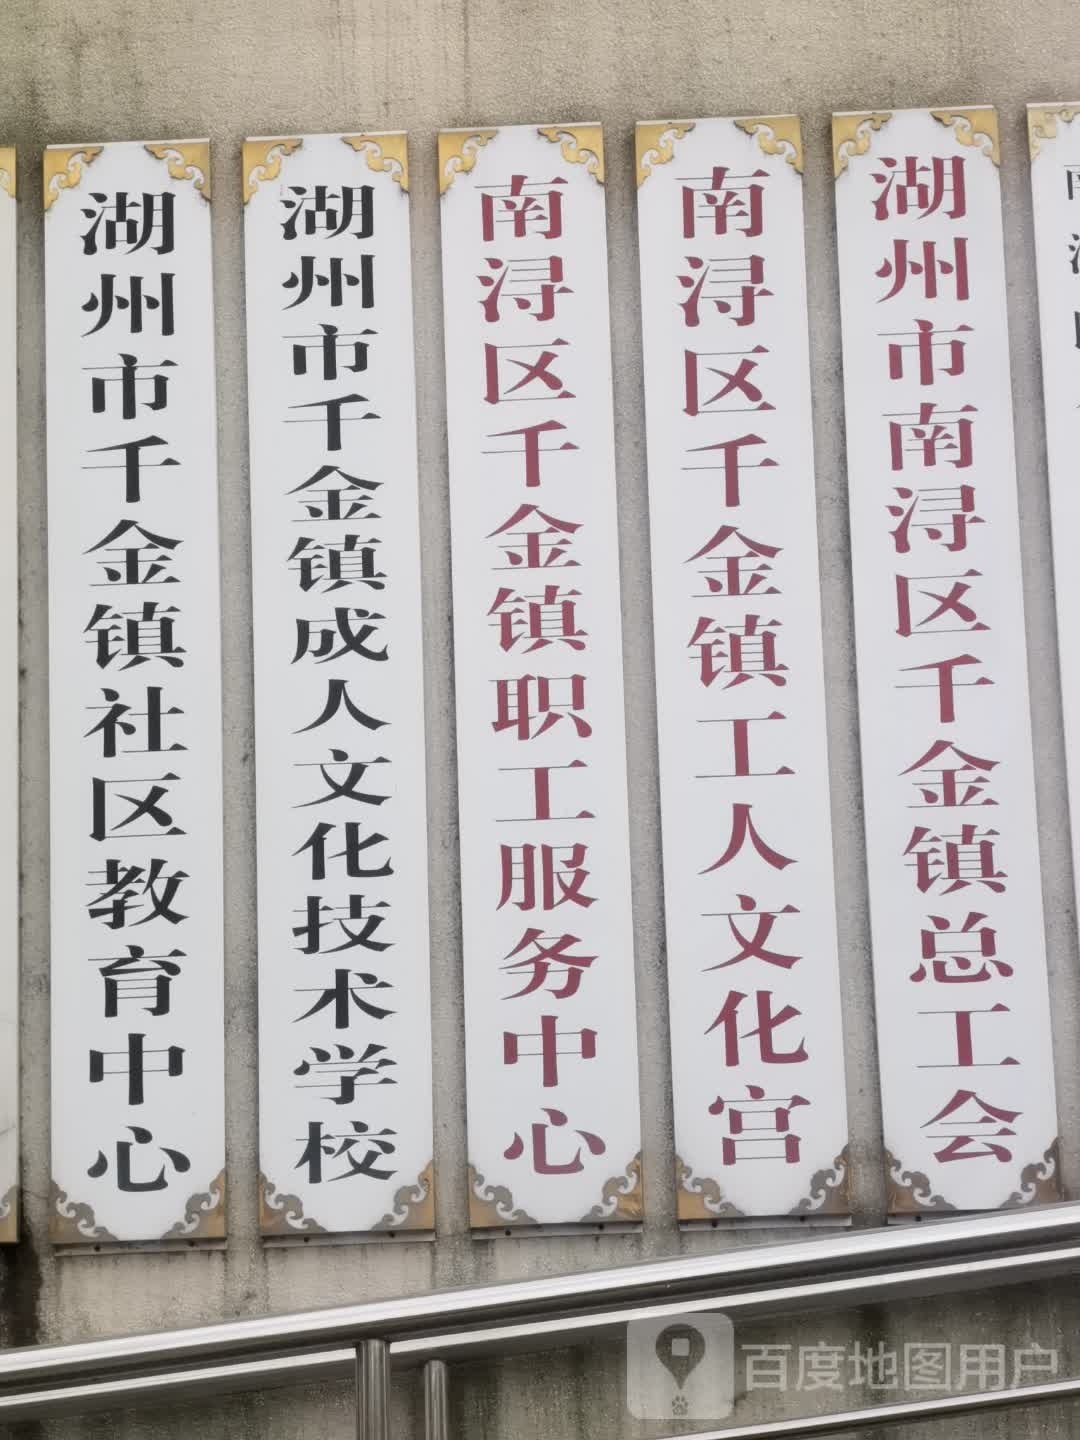 湖州市千金镇社区教育中心
湖州市千金镇成人文化技术学校
南浔区千金镇职工服务中心
南浔区千金镇工人文化宫
湖州市南浔区千金镇总工会
百度地图用户